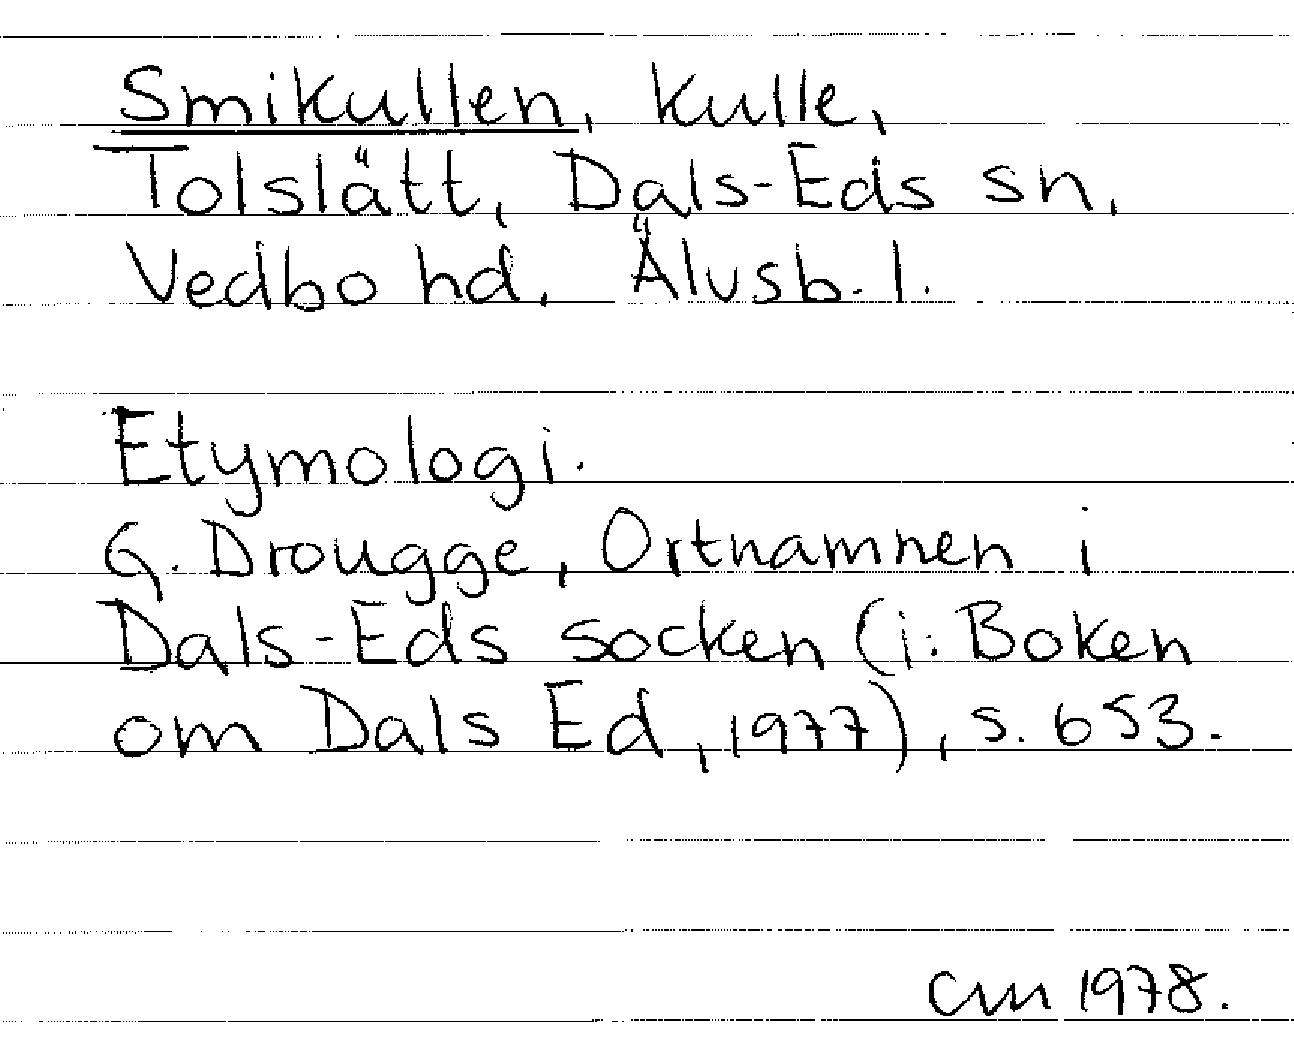 Smikullen, kulle,
Tolslätt, Dals-Eds sn,
Vedbo hd, Älvsb. l.
Etymologi.
G. Drougge, Ortnamnen i
Dals-Eds socken (i: Boken
om Dals Ed, 1977), s. 653.
CM 1978.